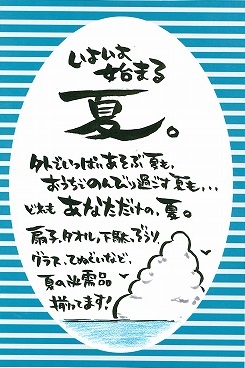 いよいよ
始まる
夏。
外でいっぱいあそぶ夏も、
おうちでのんびり過ごす夏も...
どれもあなただけの、夏。
扇子、タオル、下駄、ぞうり、
グラス、てぬぐいなど、
夏の必需品
揃ってます!